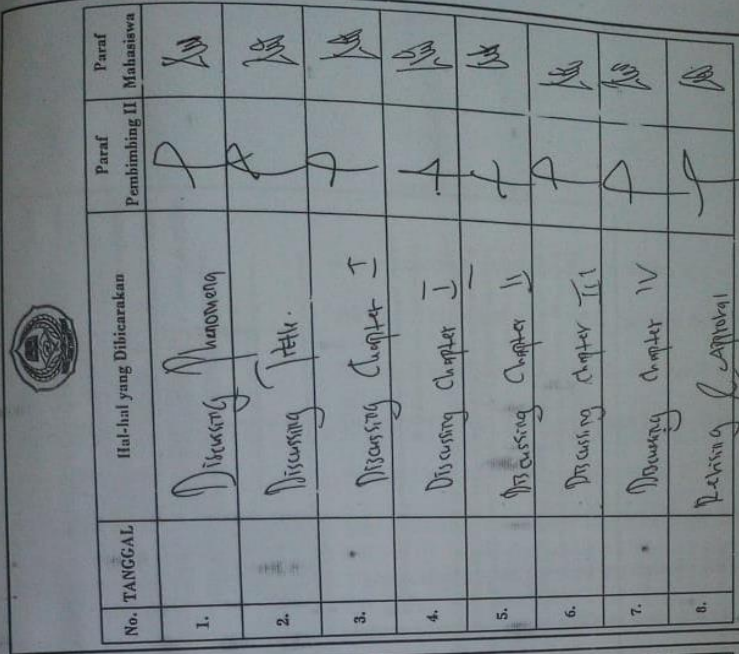 No. TANGGAL Hal-hal yang Dibicarakan Paraf Pembimbing II Paraf Mahasiswa
1. Discussing Phenomena
2. Discussing Title.
3. Discussing Chapter I
4. Discussing Chapter I
5. Discussing Chapter II
6. Discussing Chapter III
7. Discussing Chapter IV
8. Revising & Approval